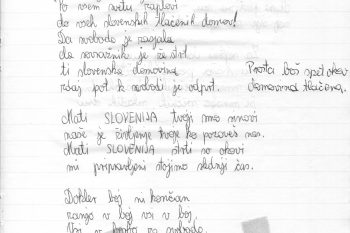 Po vsem svetu zaplovi
do vseh slovenskih tlačenih domov!
Da svoboda je zasijala
da sovražnik je že strt
ti slovenska domovina
zdaj pot k svobodi je odprt.
Prosta boš spet okov
domovina tlačena.
Mati SLOVENIJA tvoji smo sinovi
naše je življenje tvoje ko pozoves nas.
Mati SLOVENIJA strti so okovi
mi pripravljeni stojimo slednji čas.
Dokler boj ni končan
zanjo v boj vsi v boj,
Vsi v za svobodo